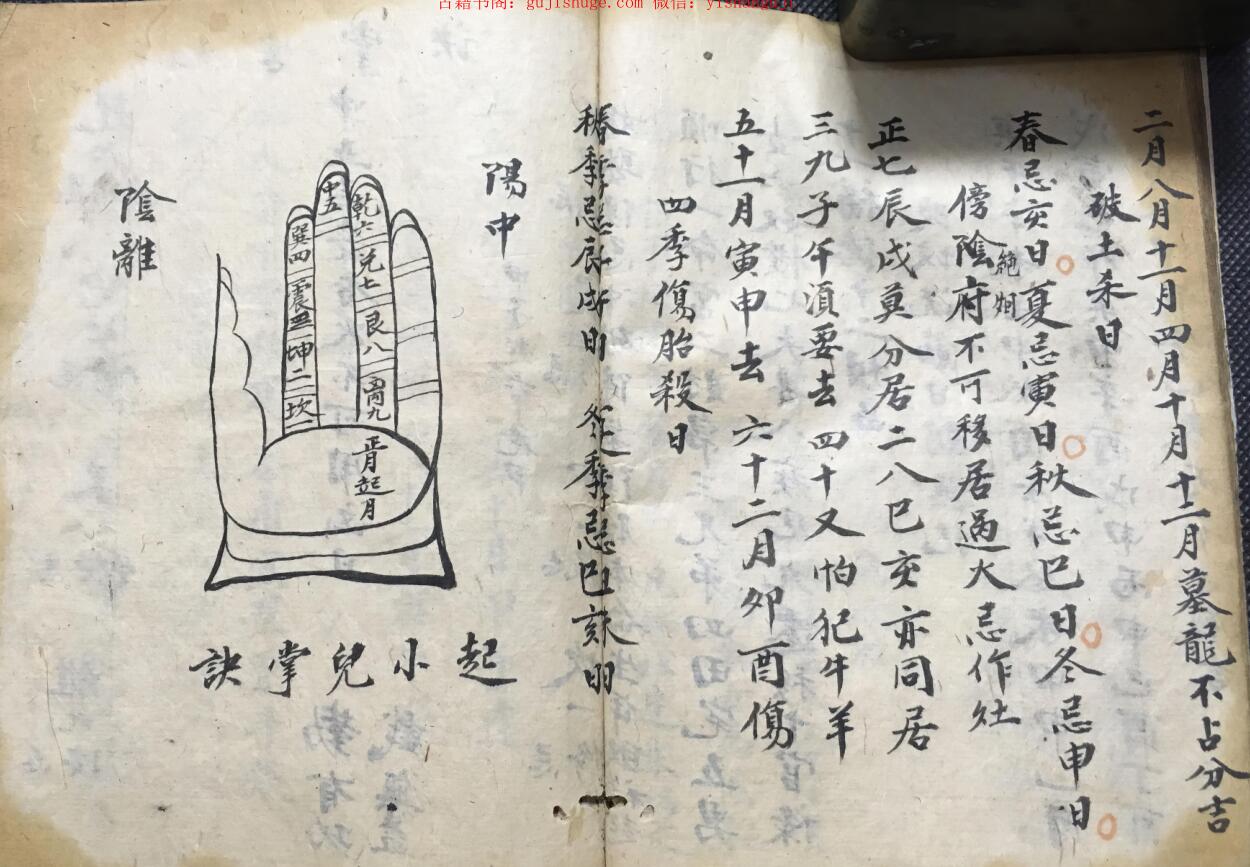 古籍书阁：gujishuge.com 微信：yishanguji
二月八月十一月四月十月十二月墓龍不占分吉
破土杀日
春忌亥日夏忌寅日秋忌巳日冬忌申日
絶烟
傍陰府不可移居過火忌作灶
正七辰戌莫分居二八巳亥亦同居
三九子午須要去 四十又怕犯牛羊
五十一月寅申去 六十二月夘酉傷
四季傷胎殺日
季忌辰戌日 冬季忌巳
陽中
中五
乾六
兌七
艮八
离九
巽四
震三
坤二
坎一
正月起月
陰離
起小兒掌訣